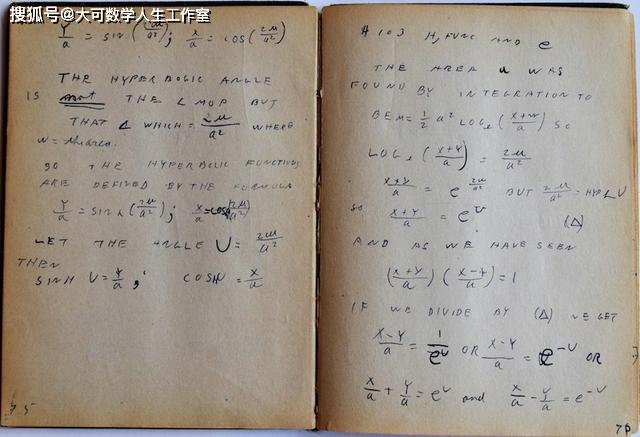 搜狐号@大可数学人生工作室
Y/a = SIN (2u/a²); X/a = COS (2u/a²)
THE HYPERBOLIC ANGLE
IS not THE ∠ MOP BUT
THAT ∠ WHICH = 2u/a² WHERE
u = the area.
SO THE HYPERBOLIC FUNCTIONS
ARE DEFINED BY THE FORMULA
Y/a = SINh (2u/a²); X/a = COSh (2u/a²)
LET THE ANGLE U = 2u/a²
THEN
SINH U = Y/a; COSH U = X/a
75
# 103 H, FUNC AND e
THE AREA u WAS
FOUND BY INTEGRATION TO
BE M = 1/2 a² LOGe (X+Y/a) SO
LOGe (X+Y/a) = 2u/a²
X+Y/a = e^(2u/a²) BUT 2u/a² = HYP ∠ U
SO X+Y/a = e^U (Δ)
AND AS WE HAVE SEEN
(X+Y/a) (X-Y/a) = 1
IF WE DIVIDE BY (Δ) WE GET
X-Y/a = 1/e^U OR X-Y/a = e^-U OR
X/a + Y/a = e^U and X/a - Y/a = e^-U